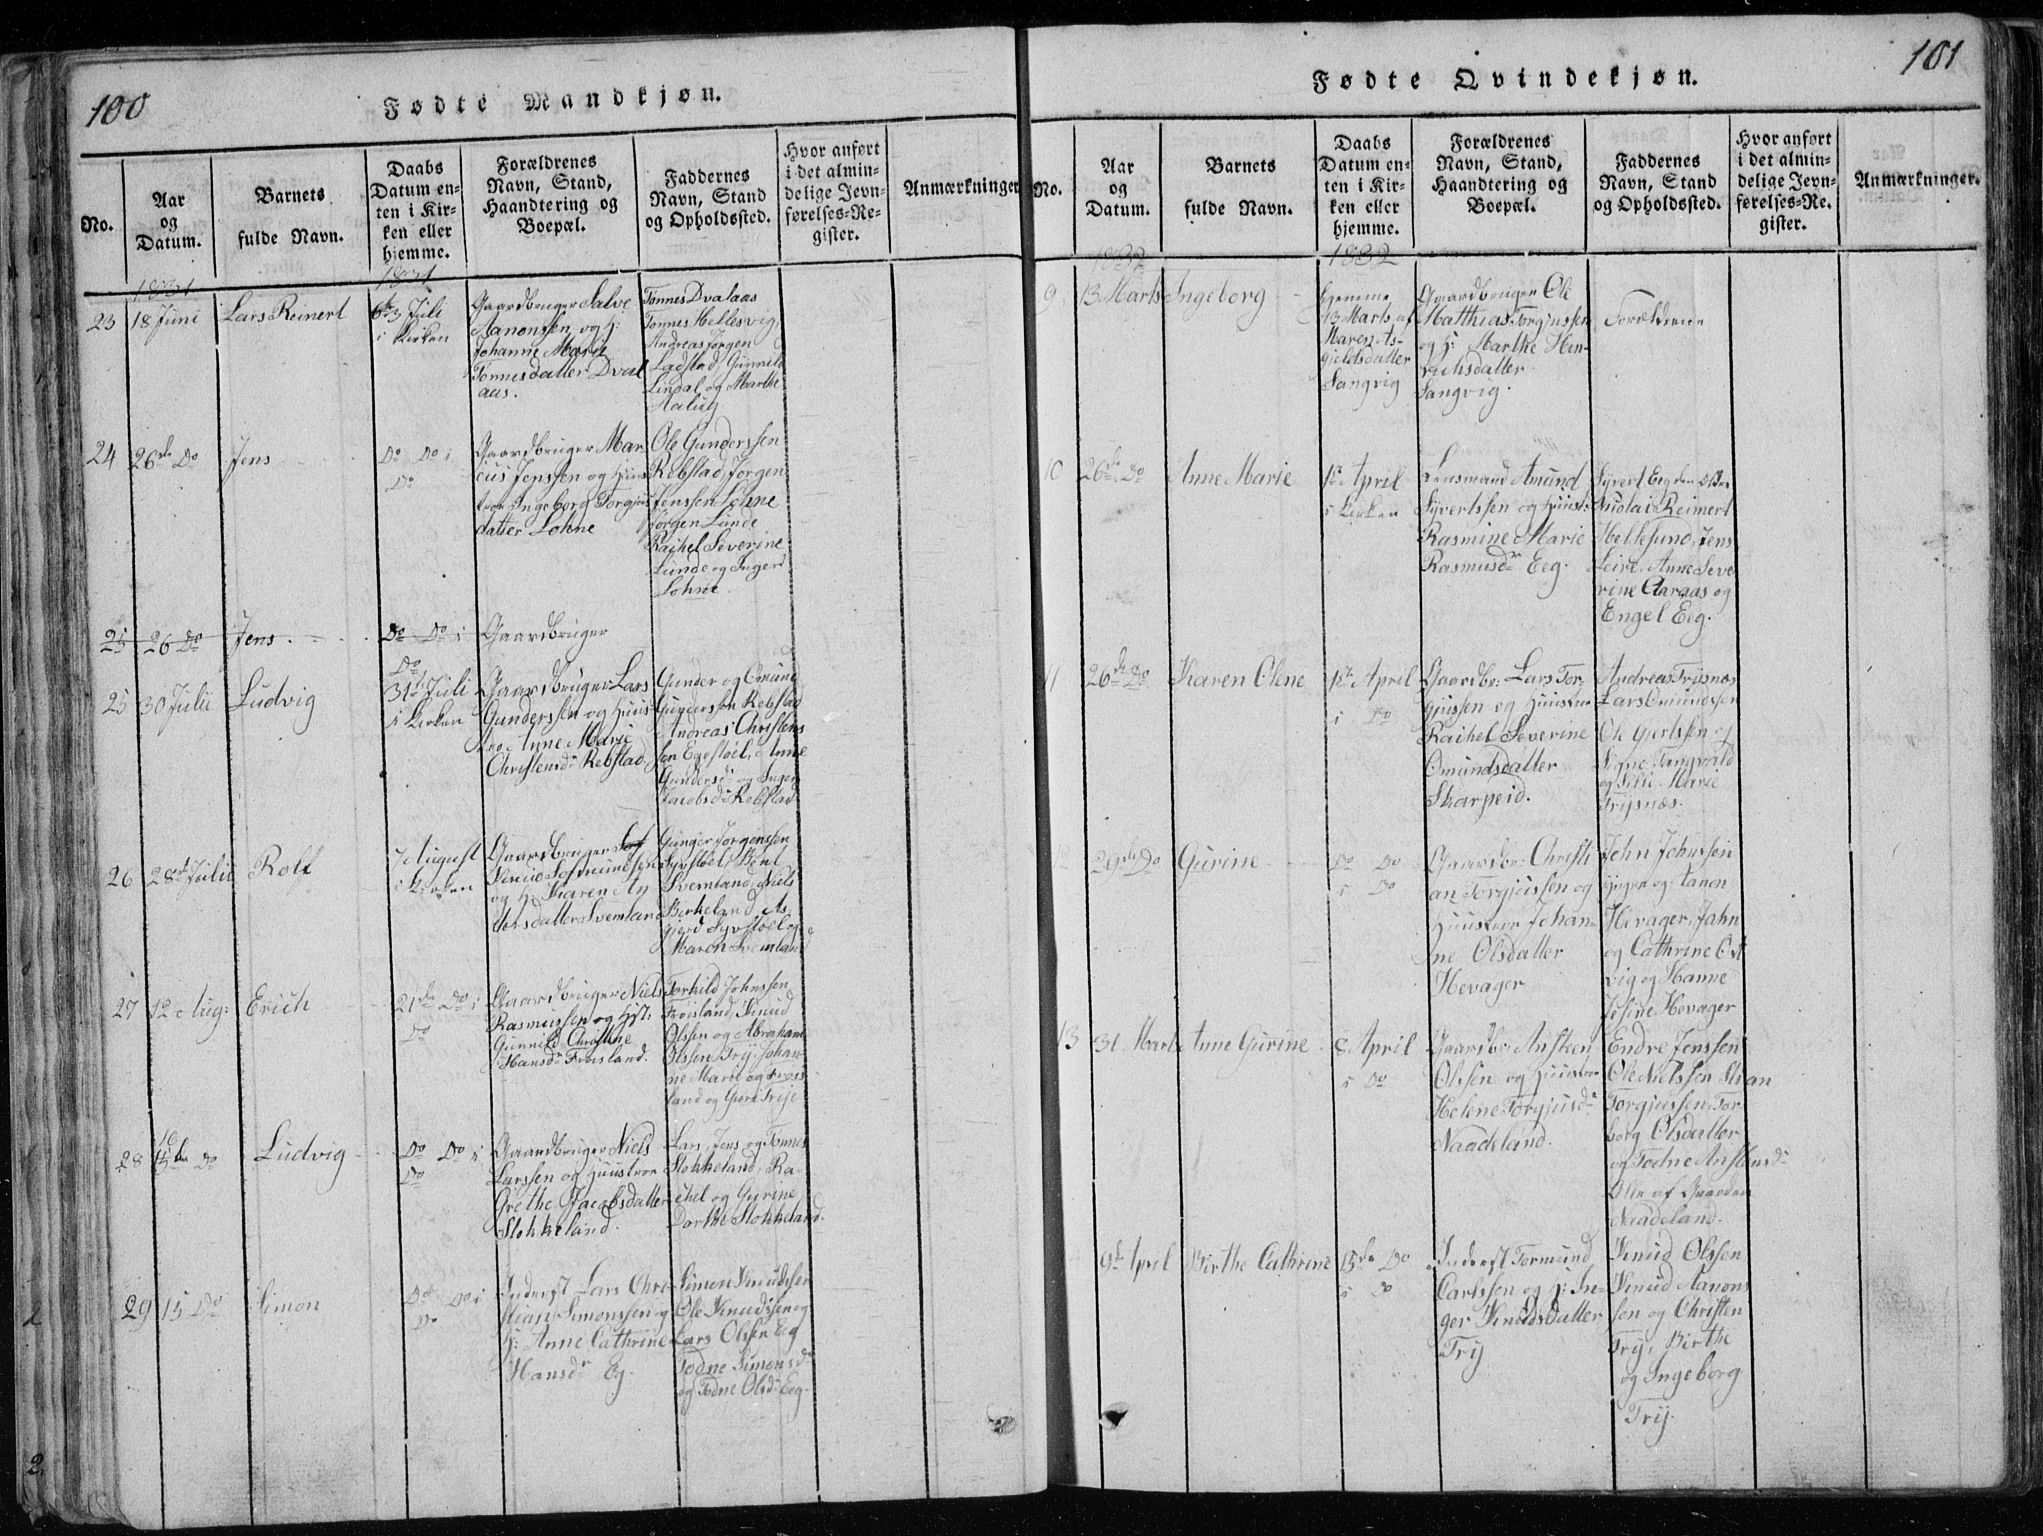 100
Fødte Mandkjøn.
No.
Aar
og
Datum.
Barnets
fulde Navn.
Daabs
Datum en-
ten i Kir-
ken eller
hjemme.
Forældrenes
Navn, Stand,
Haandtering og
Boepæl.
Faddernes
Navn, Stand
og Opholdssted.
Hvor anført
i det almin-
delige Jevn-
førelses-Re-
gister.
Anmærkninger
1831
1831
23
18 Juni
Lars Reinert
3 Juli
i Kirken
Gaardbruger Salve
Aanonsen og H:
Johanne Marie
Tønnesdatter Dval
aas.
Tønnes Dvalaas
Tønnes Hellesvig,
Andreas Jørgen
Ladstad, Gunnild
Lindal og Marthe
24
26de Do
Jens
Do Do i
Do
Gaardbruger Mar
cus Jenssen og Huus
troe Ingeborg Torgjus
datter Lohne
Ole Gunderssen
Rebstad, Jørgen
Jenssen Lohne
Jørgen Lunde
Rachel Severine
Lunde og Inger
Lohne.
25
26 Do
Jens
Do Do i
Do
Gaardbruger
25
30 Julii
Ludvig
31te Juli
i Kirken
Gaardbruger Lars
Gunderssen og Huus
troe Anne Marie
Christensdr Rebstad.
Gunder og Omund
Gunderssen Rebstad
Andreas Christens
sen Egestøel, Anne
Gundersdr og Inger
Jacobsdr Rebstad
26
28de Julii
Rolf
7 August
i Kirken
Gaardbruger
Knud
og H: Karen An
datter Svemland
Gunder Jørgenssen
Syvstøel, Bent
Svemland, Niels
Birkeland, As
gjerd Syvstøel og
Maren Svemland
27
12 Aug:
Erich
21de Do i
Do
Gaardbruger Niels
Rasmussen og Hst:
Gunnild Christine
Hansdr Frøisland.
Torkild Johnssen
Frøisland, Knud
Olssen og Abraham
Olssen Try, Johan-
ne Marie og Frøis-
land og Gure Trye
28
10
de Do
Ludvig
Do Do i
Do
Gaardbruger Niels
Larssen og Huustroe
Grethe Jacobsdatter
Stokkeland.
Lars, Jens og Tønnes
Stokkeland, Ra-
chel og Gurine
Dorthe Stokkeland.
29
15 Do
Simon
Do Do i
Do
Inderst Lars Chri-
stian Simonssen og
H: Anne Cathrine
Hansdr Eg.
Simon Knudssen
Ole Knudssen og
Lars Olssen Eeg
Todne Simonsdr
og Todne Olsdr Eeg.
101
Fødte Qvindekjøn.
No.
Aar
og
Datum.
Barnets
fulde Navn.
Daabs
Datum en-
ten i Kir-
ken eller
hjemme.
Forældrenes
Navn, Stand,
Haandtering og
Boepæl.
Faddernes
Navn, Stand
og Opholdssted.
Hvor anført
i det almin-
delige Jevn-
førelses-Re-
gister.
Anmærkninger.
1832
1832
9
13 Marts
Ingeborg
Hjemme
13 Marts af
Maren As-
gjeldsdatter
Langvig
Gaardbruger Ole
Matthias Torgjussen
og H: Marthe Hen-
richsdatter
Langvig.
Forældrene
10
26de Do
Anne Marie
1ste April
i Kirken
Lensmand Amund
Syvertssen og Huust:
Rasmine Marie
Rasmusdr Eeg.
Syvert Eeg den Ældre
Nicolai Reinert
Hellesund, Jens
Leire, Anne Seve-
rine Aaraas og
Engel Eeg.
11
26de Do
Karen Olene
1ste April
i Do
Gaardbr: Lars Tor-
gjussen og Huustroe
Rachel Severine
Omundsdatter
Skarpeid.
Andreas Trysnæs
Lars Omundssen
Ole Gjertssen og
Signe Tangvald
og Silie Marie
Trysnæs.
29de Do
Gurine
Do Do
i Do
Gaardbr: Christi
an Torgjussen og
Huustroe Johan-
ne Olsdatter
Hevager
John Johnssen
og Aanon
Hevager, John
og Cathrine Øst
vig og Hanne
Jesine Hevager
13
31 Marts
Anne Gurine
8 April
i Do
Gaardbr: Ansteen
Olssen og Huustroe
Helene Torgjusdr
Naadeland.
Endre Jenssen
Ole Nielssen, Stian
Torgjussen, Tor
borg Olsdatter
og Todne Anstensdr
Alle af Gaarden
Naadeland.
9de April
Birthe Cathrine
15de Do
i Do
Inderst Tormund
Carlssen og H: In-
ger Knudsdatter
Try
Knud Olssen
Knud Aanons
sen og Christen
Try, Birthe
og Ingeborg
Try.